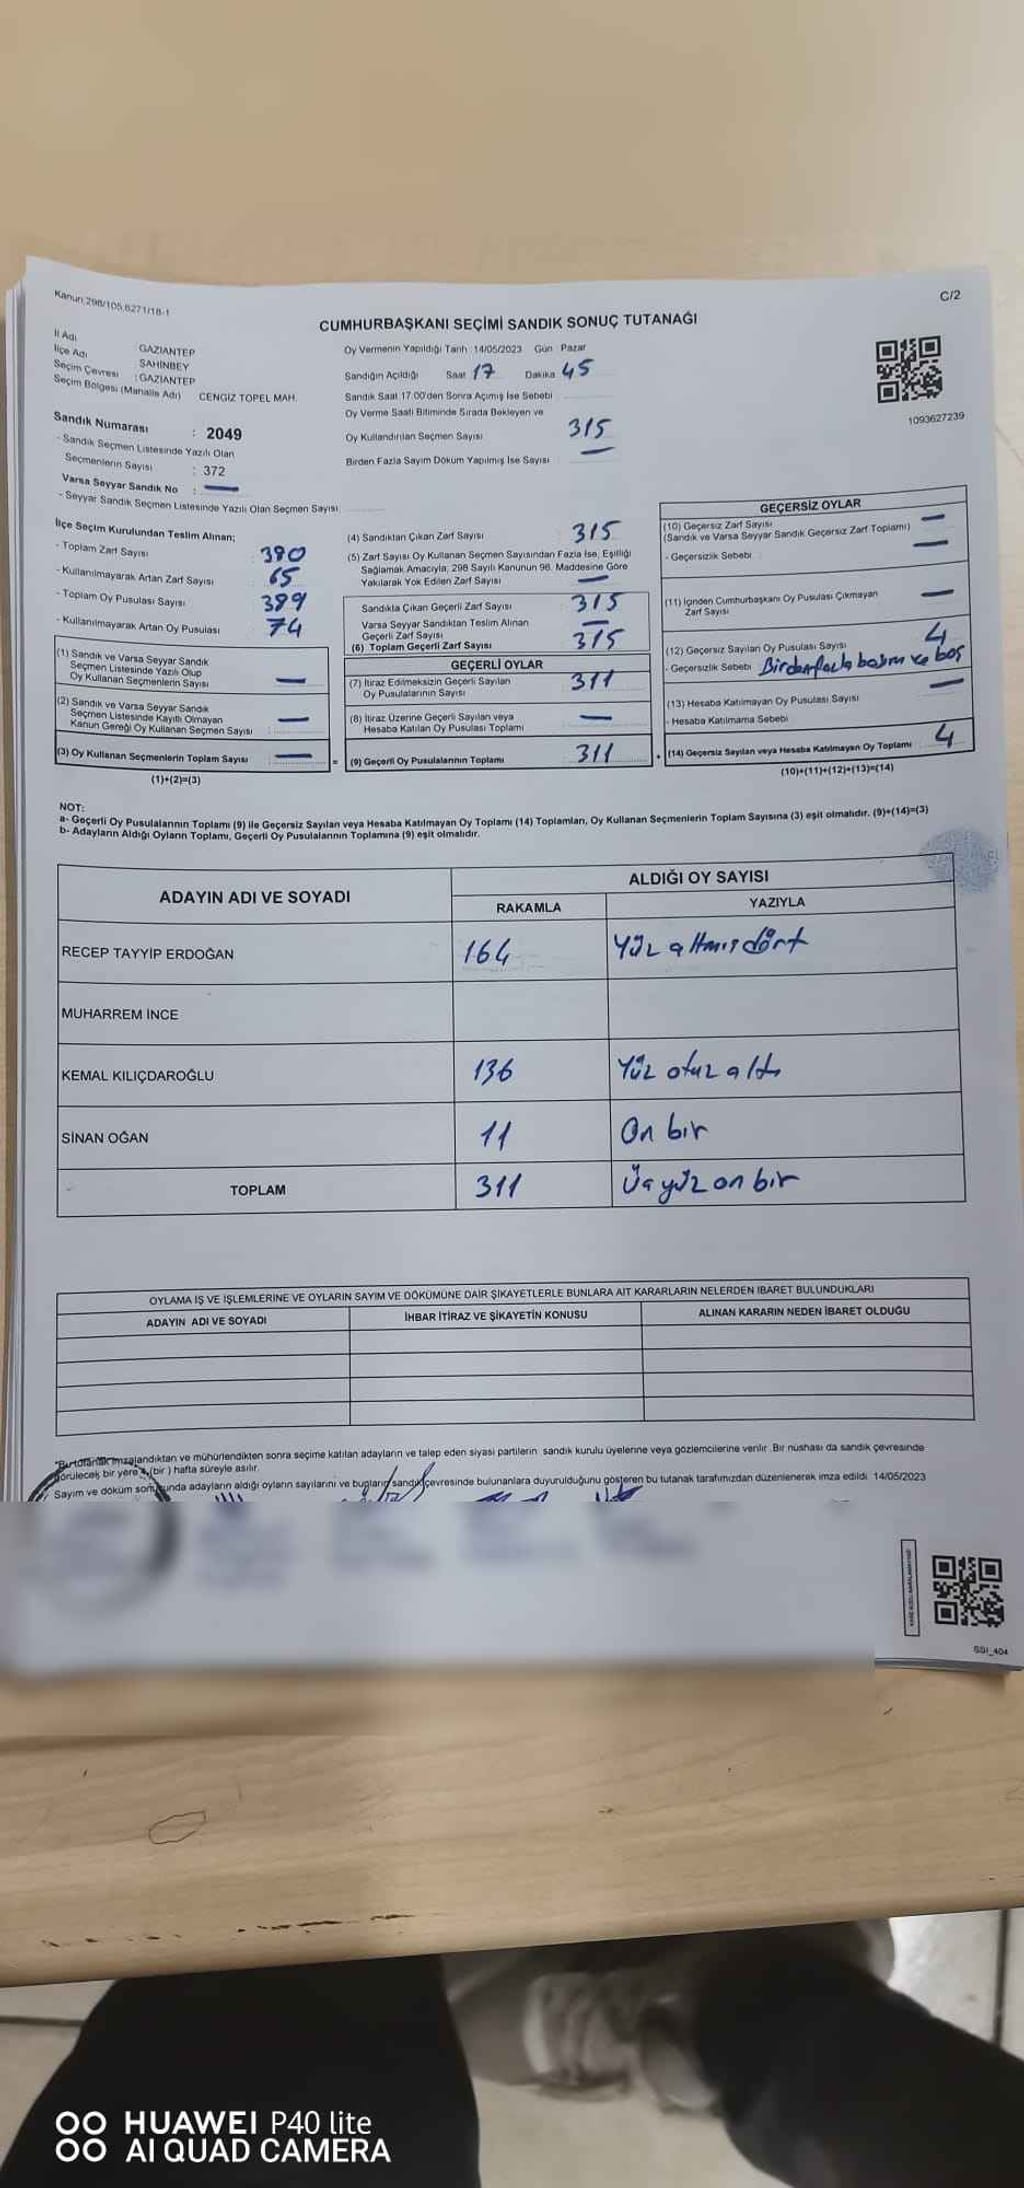 Kanun:298/105,6271/18-1
C/2
CUMHURBAŞKANI SEÇİMİ SANDIK SONUÇ TUTANAĞI
İl Adı GAZİANTEP
İlçe Adı ŞAHİNBEY
Seçim Çevresi : GAZİANTEP
Seçim Bölgesi (Mahalle Adı) CENGİZ TOPEL MAH.
Sandık Numarası : 2049
- Sandık Seçmen Listesinde Yazılı Olan
Seçmenlerin Sayısı : 372
Varsa Seyyar Sandık No : —
- Seyyar Sandık Seçmen Listesinde Yazılı Olan Seçmen Sayısı
Oy Vermenin Yapıldığı Tarih :14/05/2023 Gün : Pazar
Sandığın Açıldığı Saat 17 Dakika 45
Sandık Saat 17.00'den Sonra Açımış İse Sebebi
Oy Verme Saati Bitiminde Sırada Bekleyen ve
Oy Kullandırılan Seçmen Sayısı 315
Birden Fazla Sayım Döküm Yapılmış İse Sayısı : —
1093627239
İlçe Seçim Kurulundan Teslim Alınan;
- Toplam Zarf Sayısı 380
- Kullanılmayarak Artan Zarf Sayısı 65
- Toplam Oy Pusulası Sayısı 389
- Kullanılmayarak Artan Oy Pusulası 74
(1) Sandık ve Varsa Seyyar Sandık
Seçmen Listesinde Yazılı Olup
Oy Kullanan Seçmenlerin Sayısı —
(2) Sandık ve Varsa Seyyar Sandık
Seçmen Listesinde Kayıtlı Olmayan
Kanun Gereği Oy Kullanan Seçmen Sayısı : —
(3) Oy Kullanan Seçmenlerin Toplam Sayısı : —
(1)+(2)=(3)
(4) Sandıktan Çıkan Zarf Sayısı : 315
(5) Zarf Sayısı Oy Kullanan Seçmen Sayısından Fazla İse, Eşitliği
Sağlamak Amacıyla, 298 Sayılı Kanunun 98. Maddesine Göre
Yakılarak Yok Edilen Zarf Sayısı —
Sandıkta Çıkan Geçerli Zarf Sayısı 315
Varsa Seyyar Sandıktan Teslim Alınan
Geçerli Zarf Sayısı —
(6) Toplam Geçerli Zarf Sayısı 315
GEÇERLİ OYLAR
(7) İtiraz Edilmeksizin Geçerli Sayılan 311
Oy Pusulalarının Sayısı
(8) İtiraz Üzerine Geçerli Sayılan veya —
Hesaba Katılan Oy Pusulası Toplamı
= (9) Geçerli Oy Pusulalarının Toplamı 311
GEÇERSİZ OYLAR
(10) Geçersiz Zarf Sayısı —
(Sandık ve Varsa Seyyar Sandık Geçersiz Zarf Toplamı)
- Geçersizlik Sebebi —
(11) İçinden Cumhurbaşkanı Oy Pusulası Çıkmayan —
Zarf Sayısı
(12) Geçersiz Sayılan Oy Pusulası Sayısı 4
- Geçersizlik Sebebi Birden fazla basım ve boş
(13) Hesaba Katılmayan Oy Pusulası Sayısı —
- Hesaba Katılmama Sebebi
+ (14) Geçersiz Sayılan veya Hesaba Katılmayan Oy Toplamı 4
(10)+(11)+(12)+(13)=(14)
NOT:
a- Geçerli Oy Pusulalarının Toplamı (9) ile Geçersiz Sayılan veya Hesaba Katılmayan Oy Toplamı (14) Toplamları, Oy Kullanan Seçmenlerin Toplam Sayısına (3) eşit olmalıdır. (9)+(14)=(3)
b- Adayların Aldığı Oyların Toplamı, Geçerli Oy Pusulalarının Toplamına (9) eşit olmalıdır.
ADAYIN ADI VE SOYADI ALDIĞI OY SAYISI
RAKAMLA YAZIYLA
RECEP TAYYİP ERDOĞAN 164 Yüz altmış dört
MUHARREM İNCE
KEMAL KILIÇDAROĞLU 136 Yüz otuz altı
SİNAN OĞAN 11 On bir
TOPLAM 311 Üçyüz on bir
OYLAMA İŞ VE İŞLEMLERİNE VE OYLARIN SAYIM VE DÖKÜMÜNE DAİR ŞİKAYETLERLE BUNLARA AİT KARARLARIN NELERDEN İBARET BULUNDUKLARI
ADAYIN ADI VE SOYADI İHBAR İTİRAZ VE ŞİKAYETİN KONUSU ALINAN KARARIN NEDEN İBARET OLDUĞU
*Bu tutanak imzalandıktan ve mühürlendikten sonra seçime katılan adayların ve talep eden siyasi partilerin sandık kurulu üyelerine veya gözlemcilerine verilir. Bir nüshası da sandık çevresinde
görülecek bir yere 1 (bir) hafta süreyle asılır.
Sayım ve döküm sonucunda adayların aldığı oyların sayılarını ve bunların sandık çevresinde bulunanlara duyurulduğunu gösteren bu tutanak tarafımızdan düzenlenerek imza edildi. 14/05/2023
SSI_404
HUAWEI P40 lite
AI QUAD CAMERA